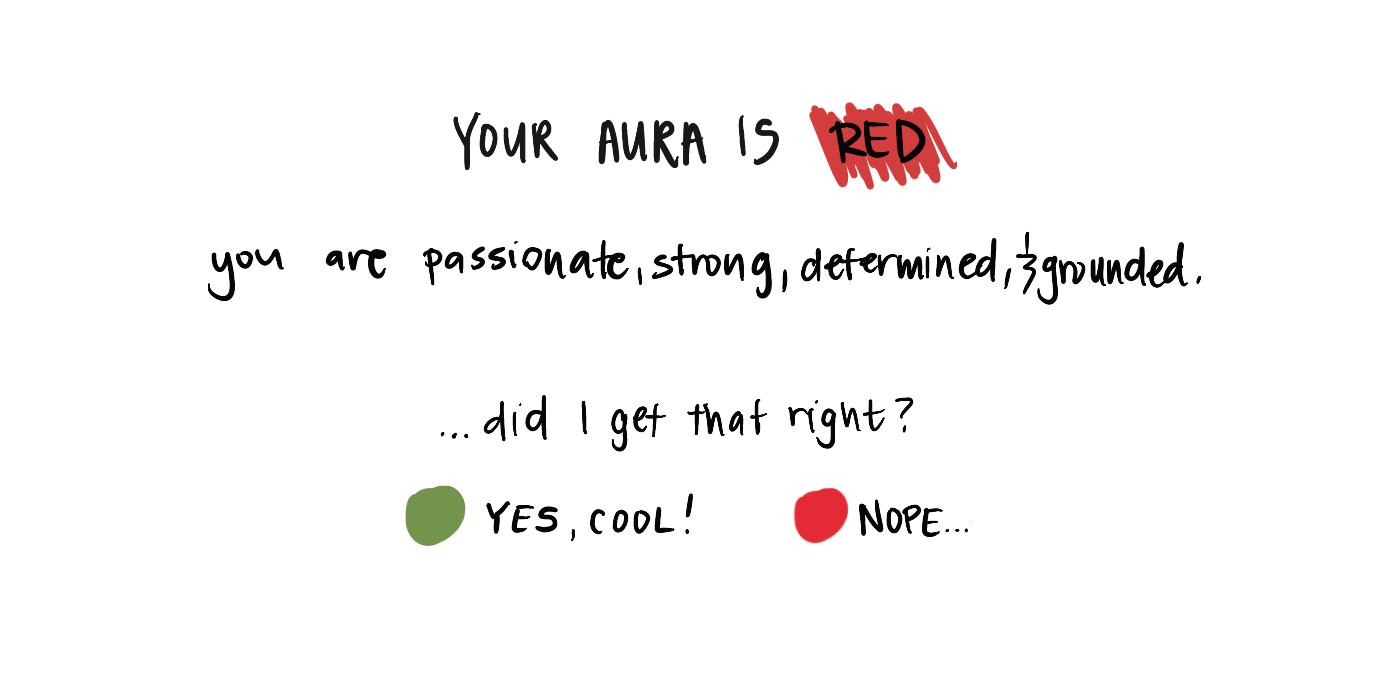 YOUR AURA IS RED
you are passionate, strong, determined, & grounded.
...did I get that right?
YES, COOL! NOPE...